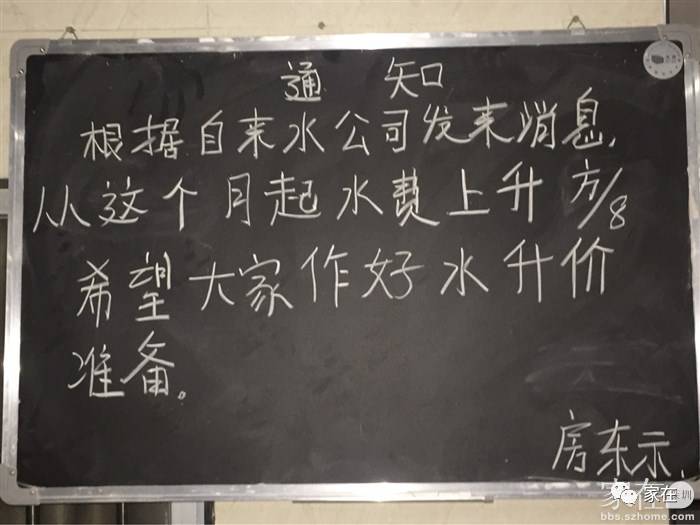 通 知
根据自来水公司发来消息,
从这个月起水费上升 方/8
希望大家作好水升价
准备。
房东示
家在
bbs.szhome.com